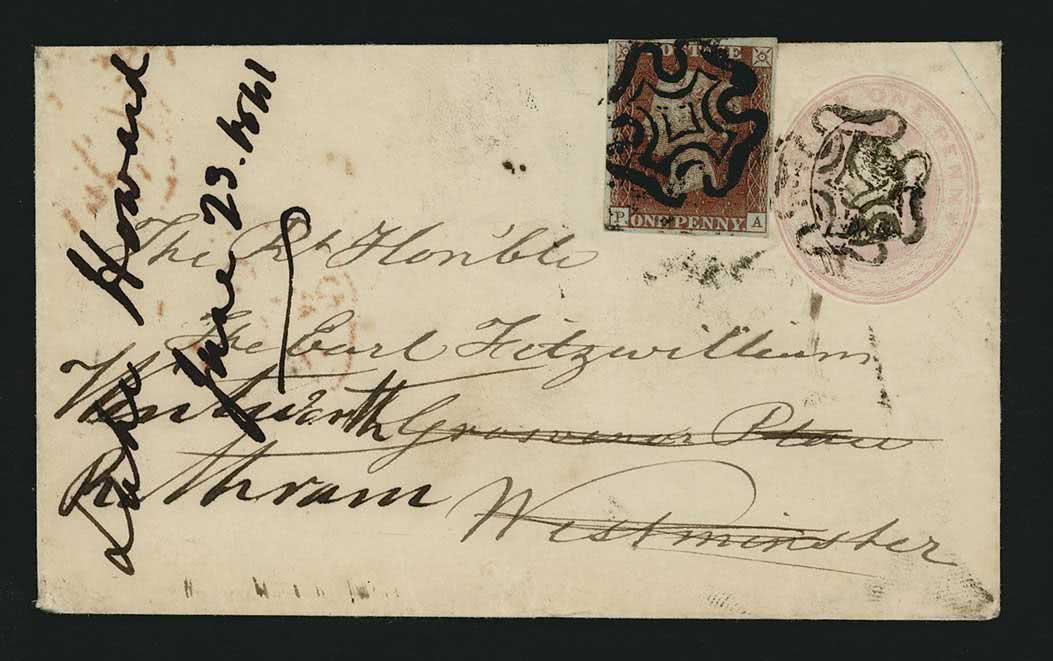 POSTAGE
P ONE PENNY A
ONE PENNY
The Rt Honble
The Earl Fitzwilliam
Wentworth Grosvenor Place
Rotheram Westminster
Luke Howard
June 23. 1841